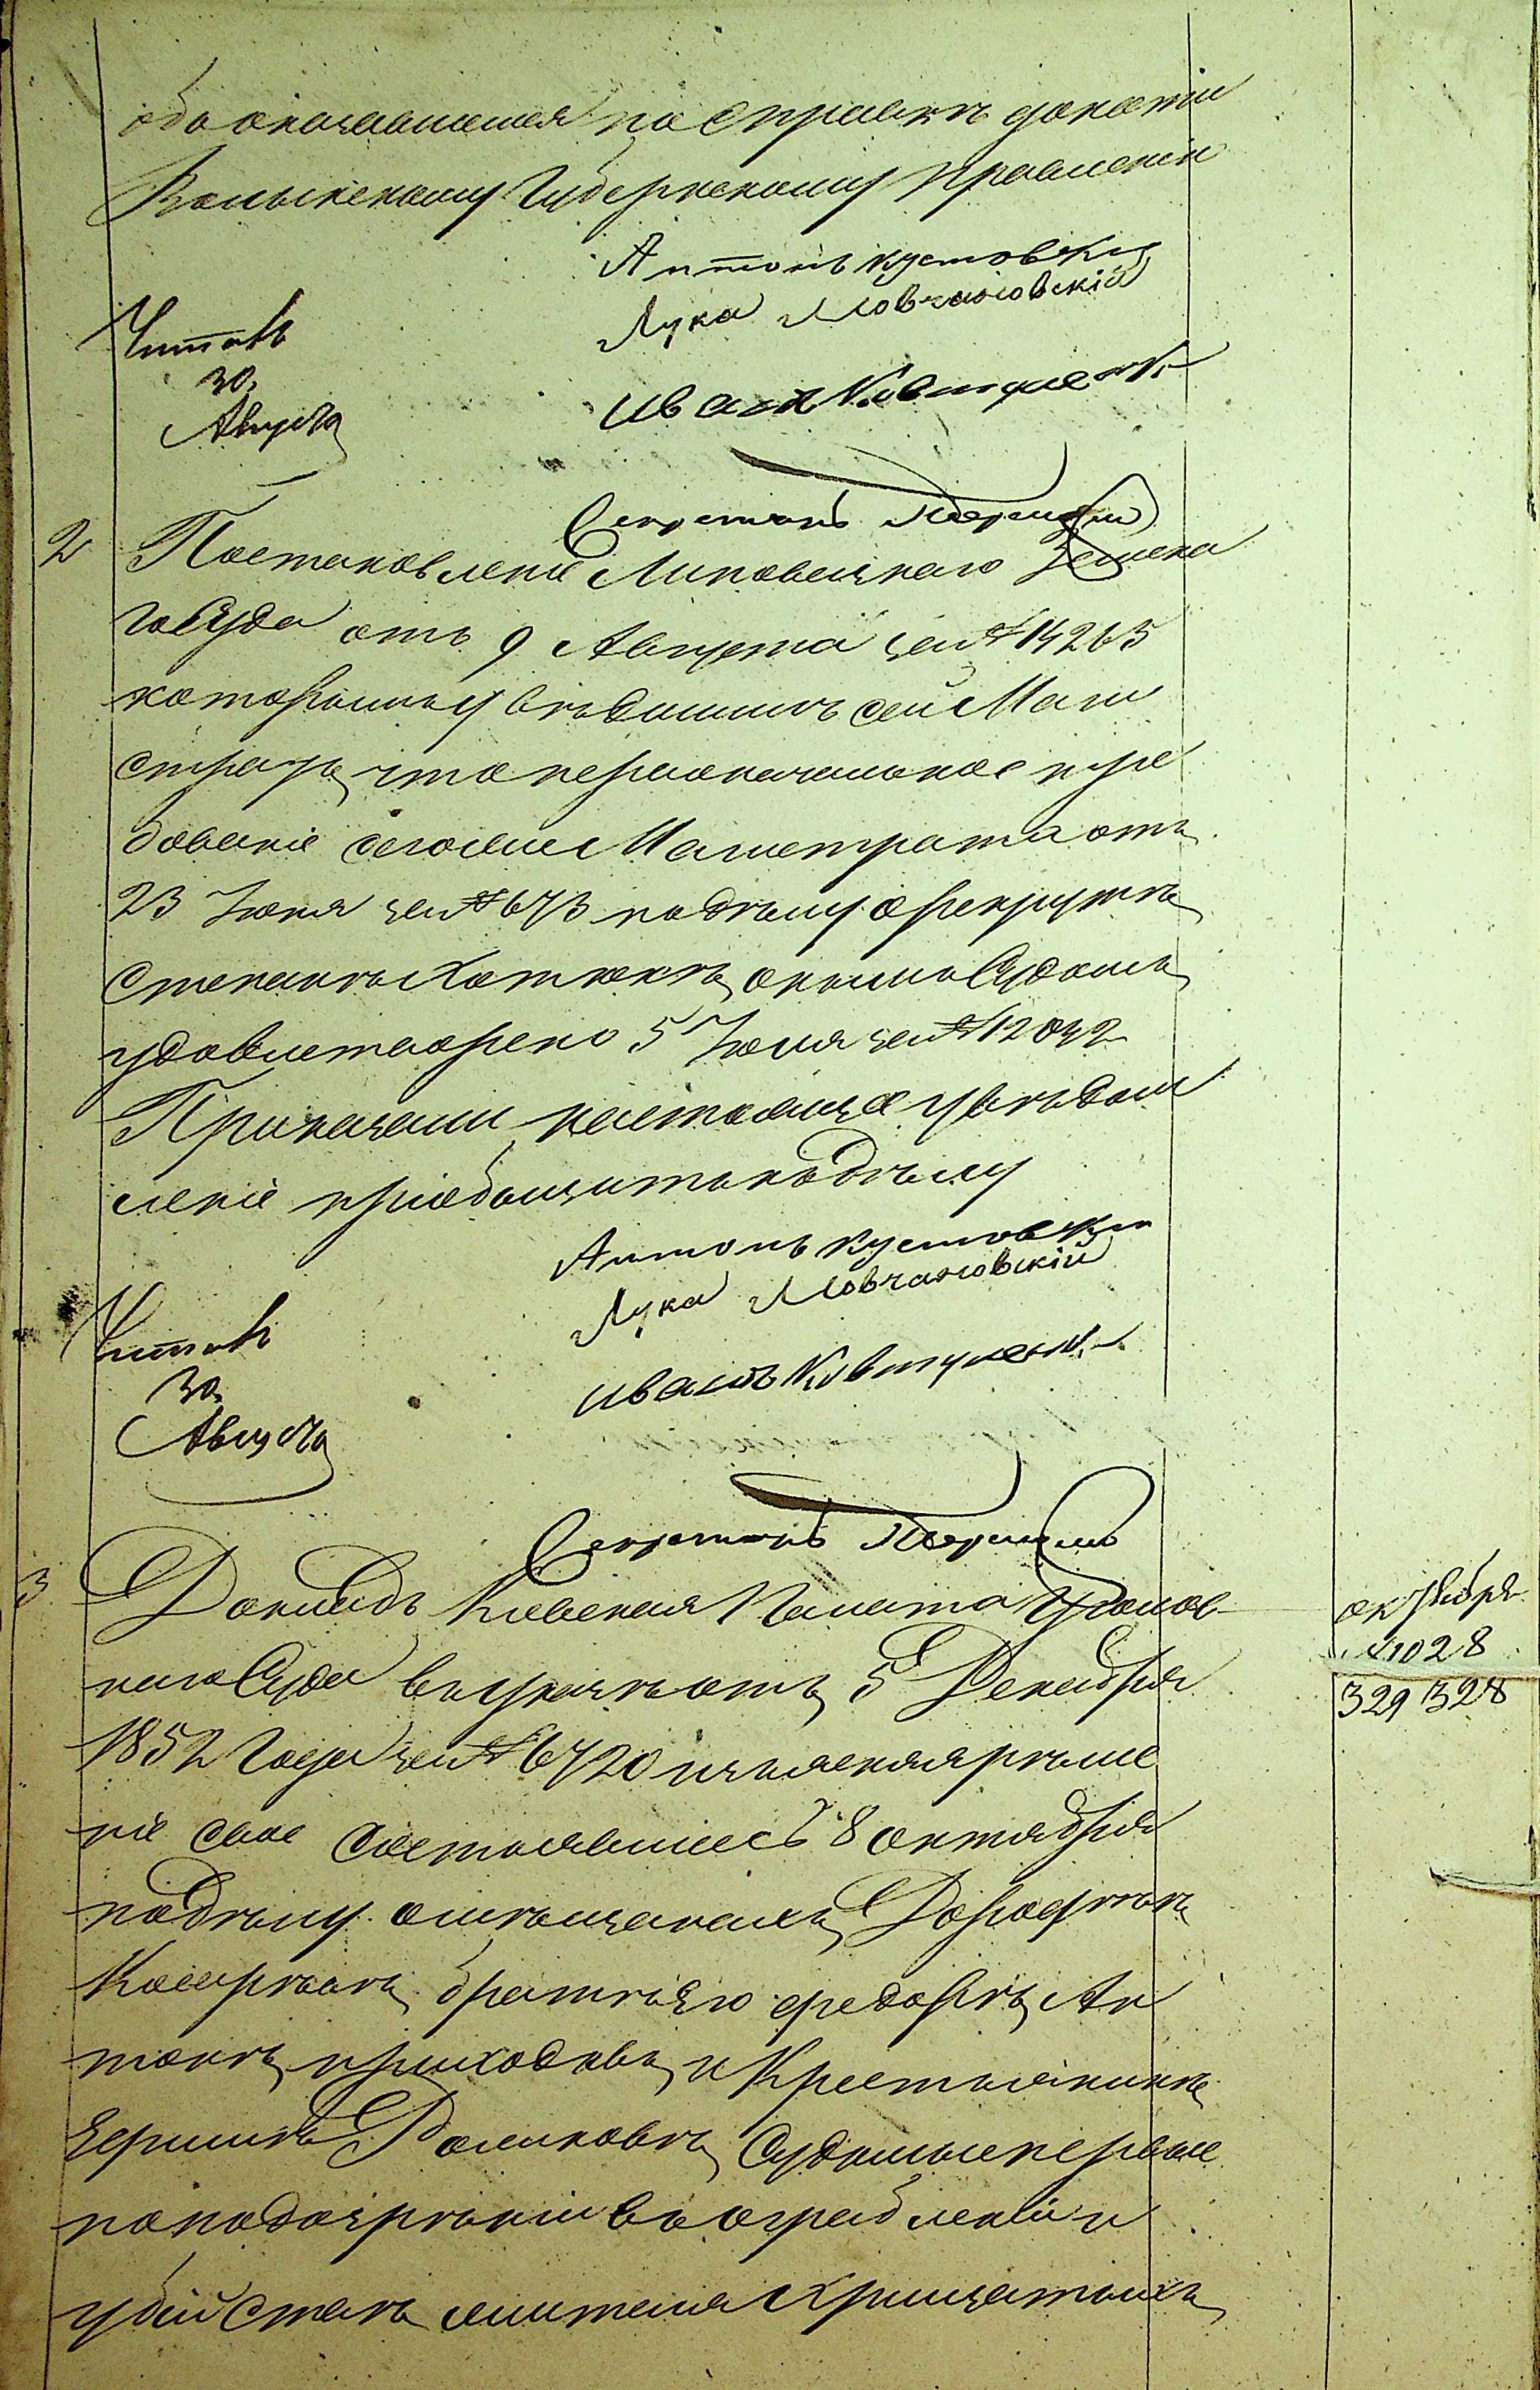 обо оказавшемся по Справкѣ донести
Волынскому Губернскому Правленію
Антонъ Кустовскій
Лука Мовчановскій
Иванъ Ковтуненк
Читалъ
30.
Августа
Секретарь
2 Постановленіе Липовецкаго Земска
го Суда отъ 9 Августа за № 14265
которымъ увѣдомилъ сей Маги
стратъ, что первоначальное тре
бованіе сего же Магистрата отъ
23 Іюня за № 673 по дѣлу о рекрутѣ
Степанѣ онымъ Судомъ
удовлетворено 5 Іюля за № 12032
Приказали настоящее увѣдом
леніе пріобщить къ дѣлу
Антонъ Кустовскій
Лука Мовчановскій
Иванъ Ковтуненк
Читалъ
30.
Августа
Секретарь
3 Докладъ Кіевская Палата Уголов
наго Суда въ указѣ отъ 5 Декабря
1852 Года за № 6720 изъясняя рѣше
ніе свое состоявшееся 8 октября
по дѣлу о мѣщанахъ Дорофѣѣ
братѣ его Федорѣ, Ан
тонѣ и Крестьянинѣ
судимыхъ первые
по подозрѣнію въ ограбленіи и
убійствѣ жителя
октября
1028
329 328